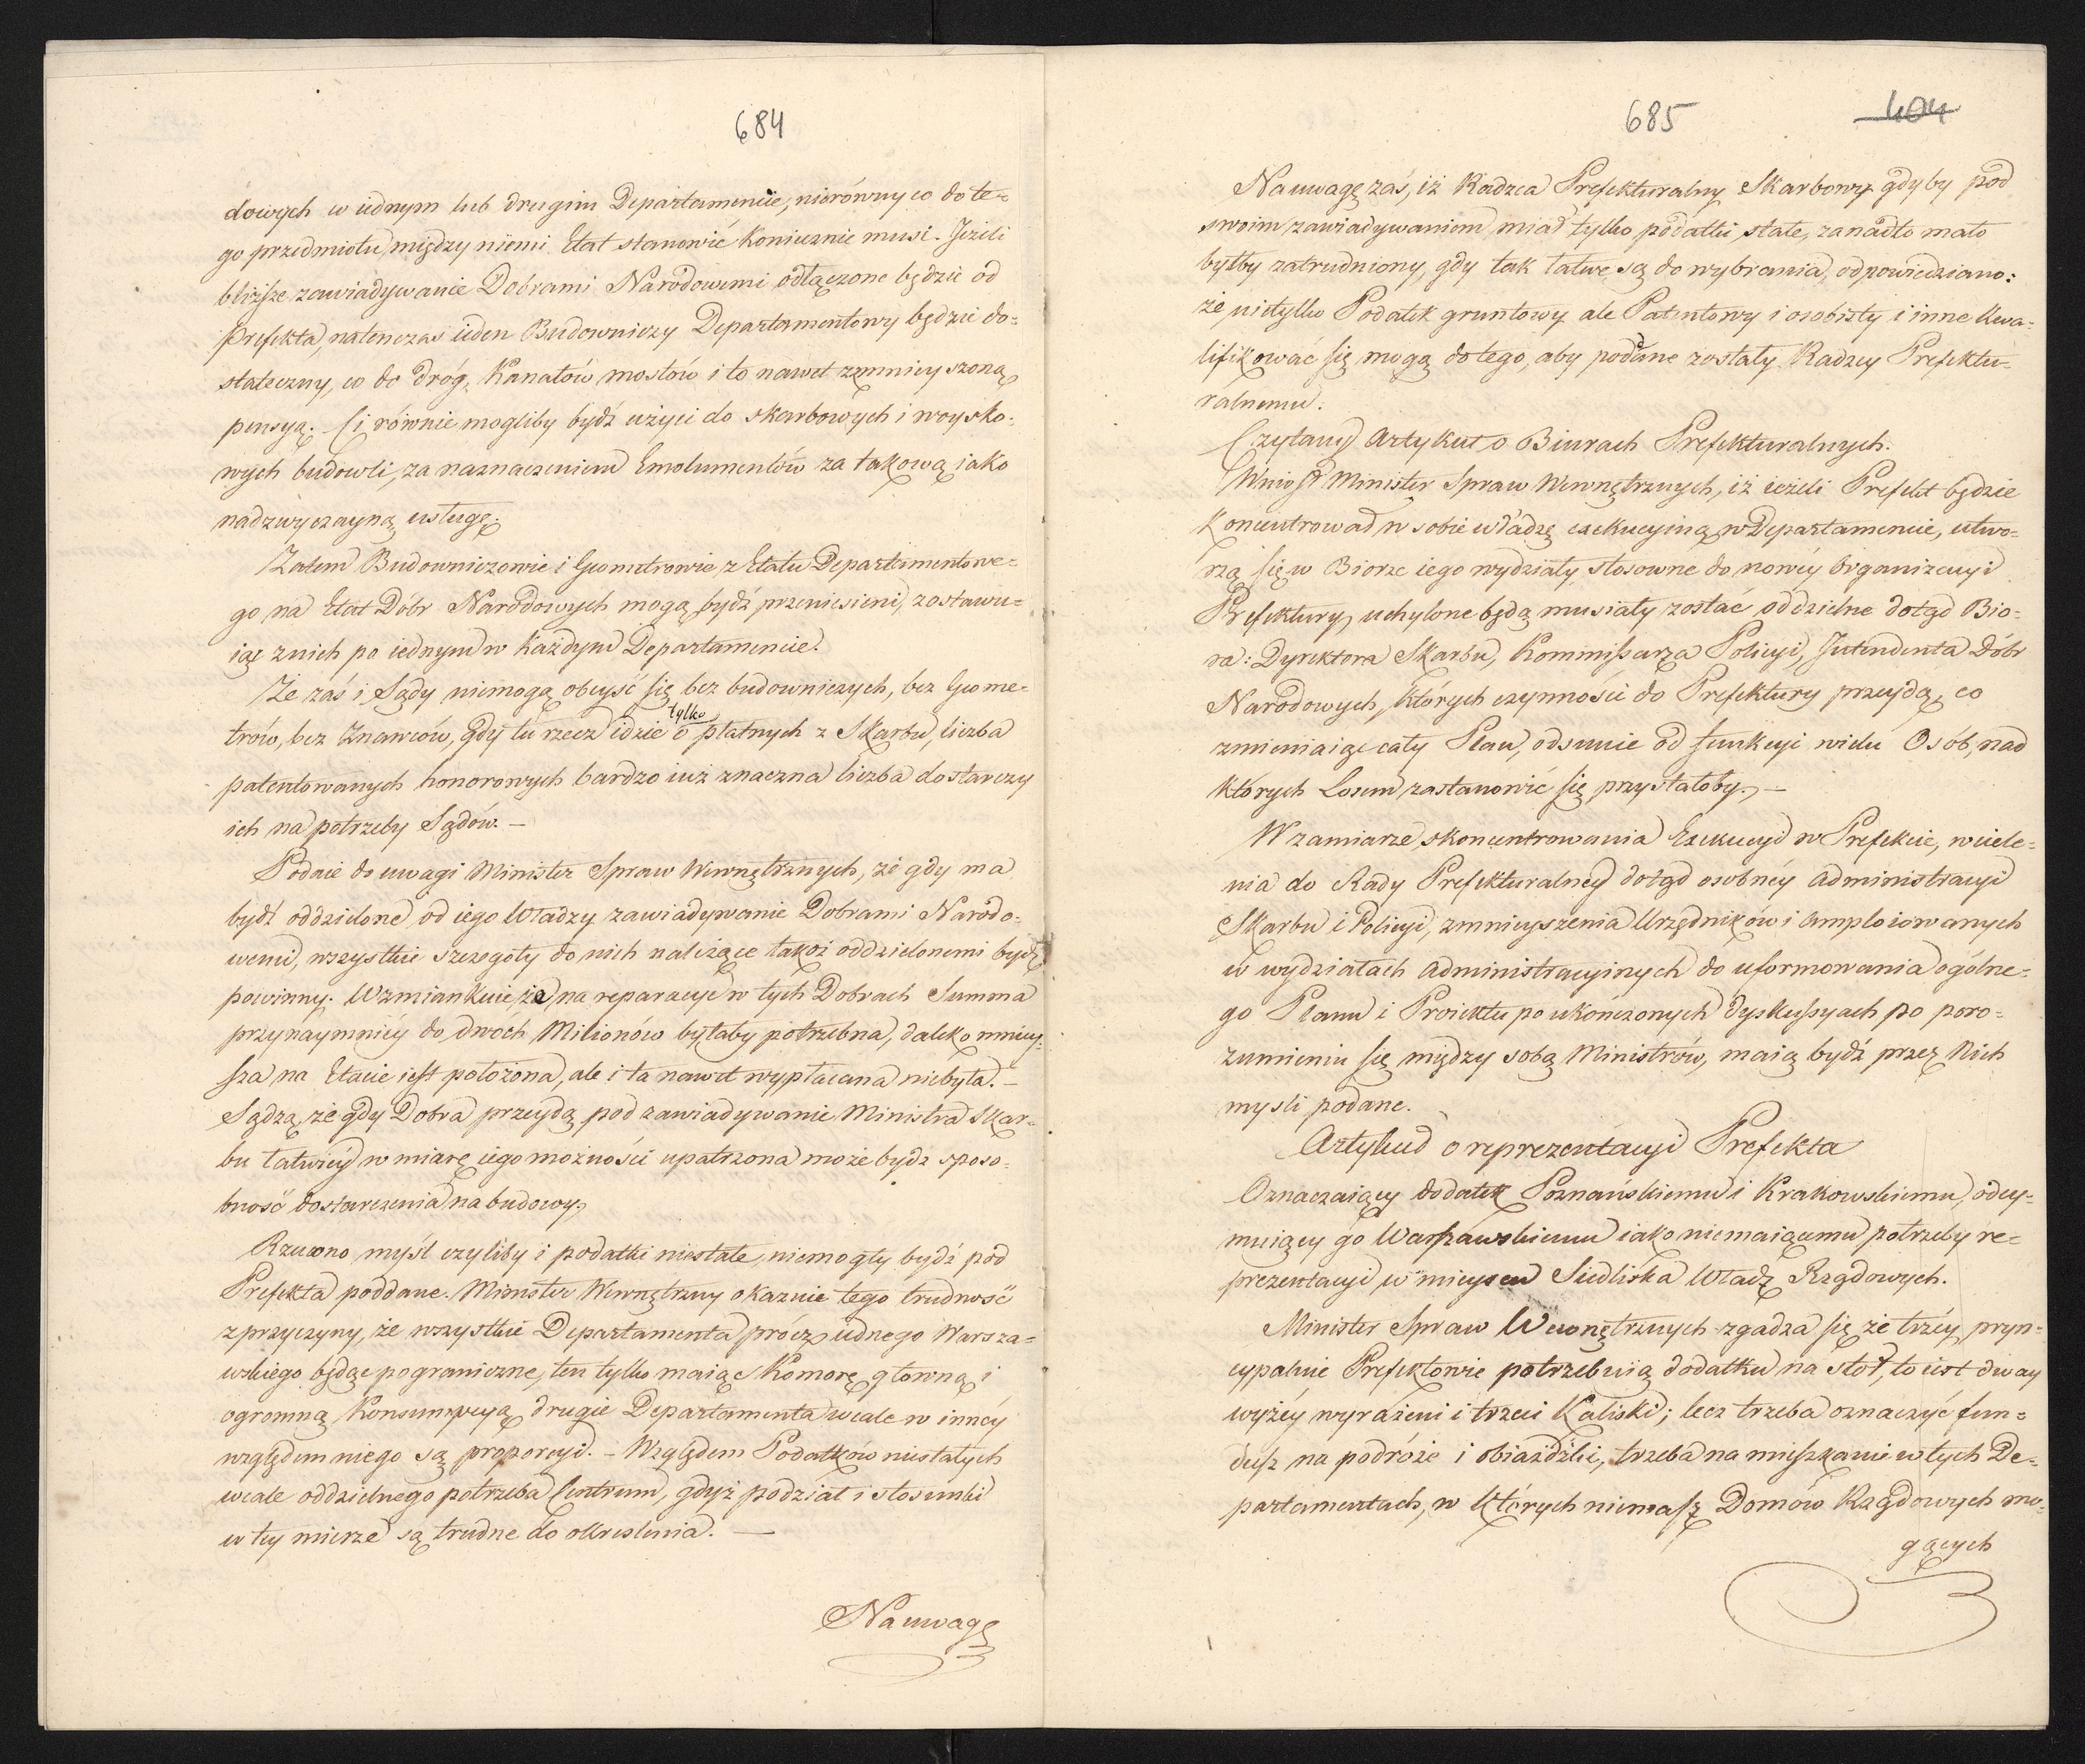 684
dowych w iednym lub drugim Departamencie, nierówny co do te-
go przedmiotu między niemi Etat stanowić koniecznie musi. Jeżeli
bliższe zawiadywanie Dobrami Narodowemi odłączone będzie od
Prefekta, natenczas ieden Budowniczy Departamentowy będzie do-
stateczny, co do dróg, Kanałów mostów i to nawet zmnieyszoną
pensyą. Ci równie mogliby bydź użyci do skarbowych i woysko-
wych budowli, za naznaczeniem Emolumentów za takową iako
nadzwyczayną usługę.
Zatem Budowniczowie i Geometrowie z Etatu Departamentowe-
go na Etat Dóbr Narodowych mogą bydź przeniesieni, zostawu-
iąc z nich po iednym w każdym Departamencie.
Że zaś i Sądy niemogą obeyść się bez budowniczych, bez Geome-
trów, bez Znawców, gdy tu rzecz idzie tylko o płatnych z Skarbu, liczba
patentowanych honorowych bardzo iuż znaczna liczba dostarczy
ich na potrzeby Sądów. —
Podaie do uwagi Minister Spraw Wewnętrznych, że gdy ma
bydź oddzielone od iego Władzy zawiadywanie Dobrami Narodo-
wemi, wszystkie szczegóły do nich należące takoż oddzielonemi bydź
powinny. Wzmiankuie, że na reparacye w tych Dobrach Summa
przynaymniéy do dwóch Milionów byłaby potrzebna, daleko mniey-
sza na Etacie iest położona, ale i ta nawet wypłacana niebyła. —
Sądzą, że gdy Dobra przeydą pod zawiadywanie Ministra Skar-
bu łatwiéy w miarę iego możności upatrzona może bydz sposo-
bność dostarczenia na budowy.
Rzucono myśl czyliby i podatki niestałe, niemogły bydź pod
Prefekta poddane. Minister Wewnętrzny okazuie tego trudność
z przyczyny, że wszystkie Departamenta prócz iednego Warsza-
wskiego będąc pograniczne, ten tylko maiąc Komorę główną i
ogromną Konsumpcyą drugie Departamenta wcale w innéy
względem niego są proporcyi. — Względem Podatków niestałych
wcale oddzielnego potrzeba Centrum, gdyż podział i stosunki
w téy mierze są trudne do okreslenia. —
Na uwagę
685 404
Na uwagę zaś, iż Radzca Prefekturalny Skarbowy gdyby pod
swoim zawiadywaniem miał tylko podatki stałe, zanadto mało
byłby zatrudniony, gdy tak łatwe są do wybrania, odpowiedziano:
że nietylko Podatek gruntowy ale Patentowy i osobisty i inne kwa-
lifikować się mogą do tego, aby poddane zostały Radzcy Prefektu-
ralnemu.
Czytany Artykuł o Biurach Prefekturalnych.
Wniosł Minister Spraw Wewnętrznych, iż ieżeli Prefekt będzie
Koncentrował w sobie władzę exekucyiną w Departamencie, utwo-
rzą się w Biorze iego wydziały stosowne do nowéy Organizacyi
Prefektury, uchylone będą musiały zostać oddzielne dotąd Bio-
ra: Dyrektora Skarbu, Kommissarza Policyi, Intendenta Dóbr
Narodowych, których czynności do Prefektury przeydą, co
zmieniaiąc cały Plan, odsunie od funkcyi wielu Osób, nad
których Losem zastanowić się przystałoby. —
W zamiarze skoncentrowania Exekucyi w Prefekcie, wciele-
nia do Rady Prefekturalney dotąd osobnéy Administracyi
Skarbu i Policyi, zmnieyszenia Urzędników i Amploiowanych
w wydziałach Administracyinych do uformowania ogólne-
go Planu i Proiektu po ukończonych dyskussyach po poro-
zumieniu się między sobą Ministrów, maią bydź przez Nich
mysli podane.
Artykuł o reprezentacyi Prefekta
Oznaczaiący dodatek Poznańskiemu i Krakowskiemu, odey-
muiący go Warszawskiemu iako niemaiącemu potrzeby re-
prezentacyi w mieyscu Siedliska Władz Rządowych.
Minister Spraw Wewnętrznych zgadza się że trzéy pryn-
cypalnie Prefektowie potrzebuią dodatku na stół, to iest dway
wyżéy wyrażeni i trzeci Kaliski; lecz trzeba oznaczyć fun-
dusz na podróże i obiażdżki, trzeba na mieszkanie w tych De-
partamentach, w których niemasz Domów Rządowych mo-
gących